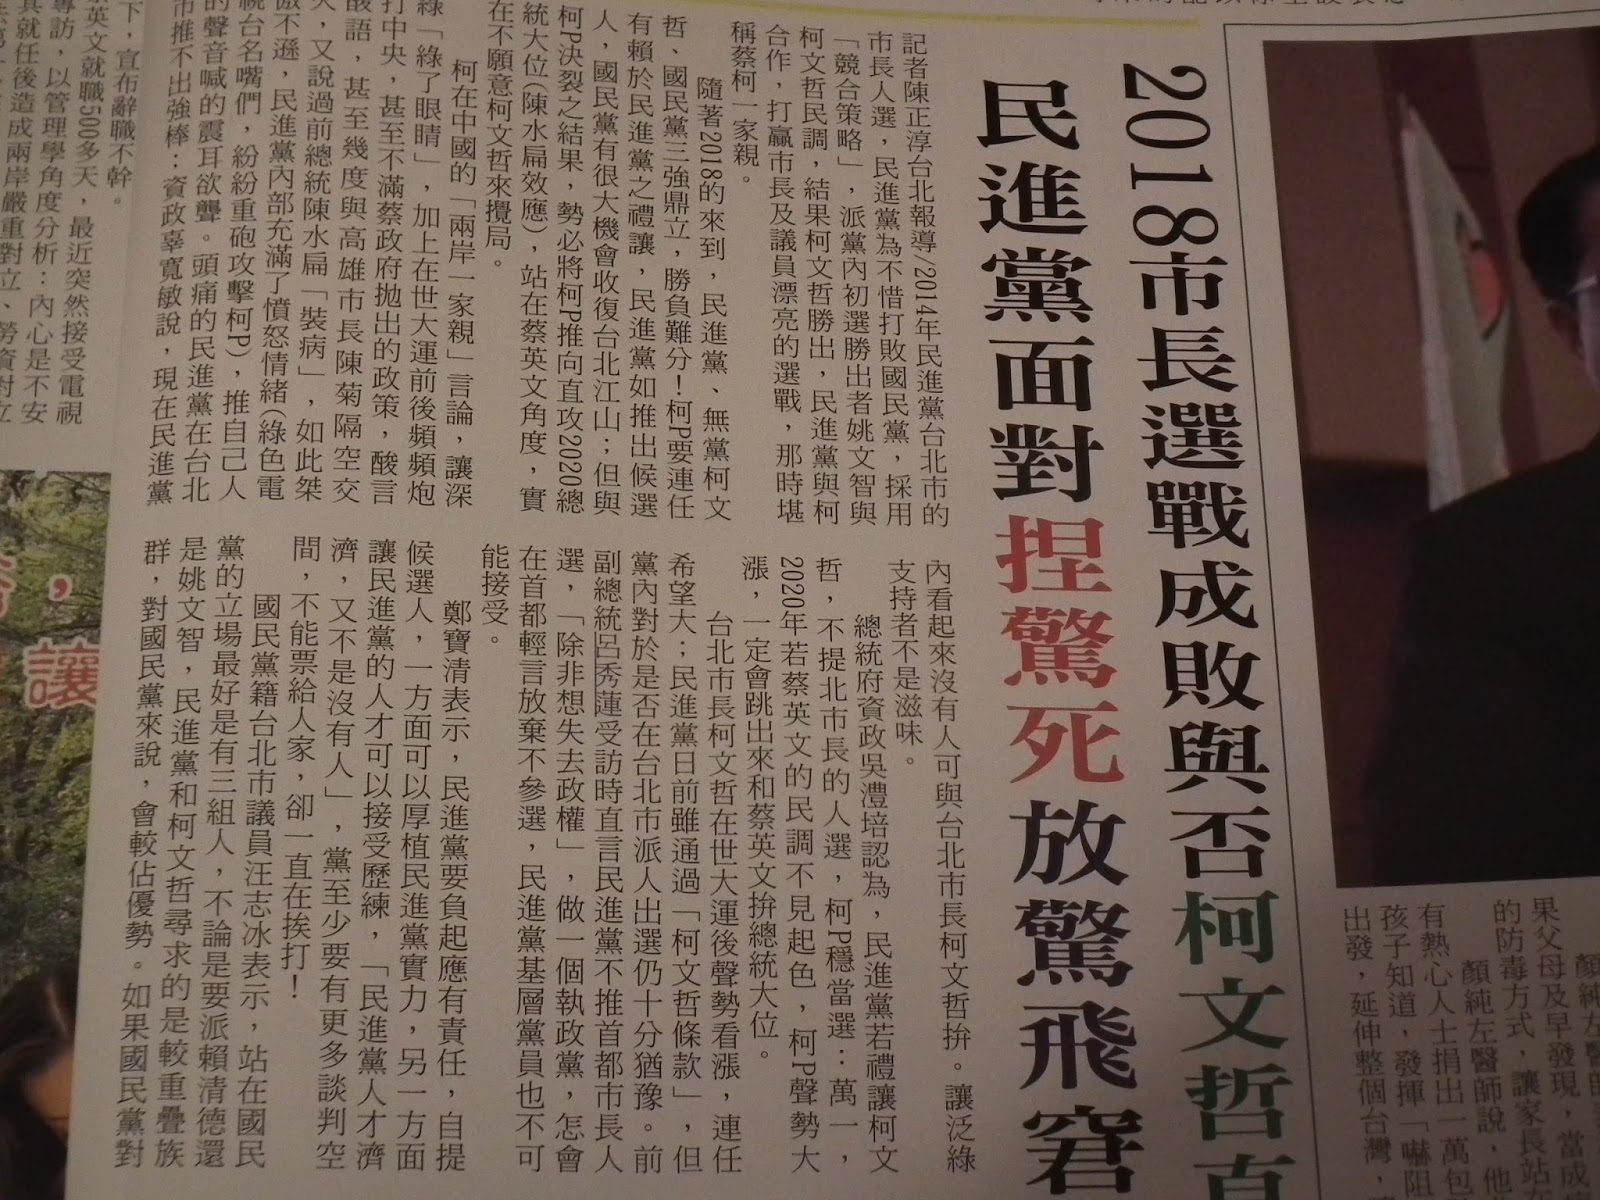 2018市長選戰成敗與否柯文哲
民進黨面對捏驚死放驚飛窘
記者陳正淳台北報導/2014年民進黨台北市的
市長人選，民進黨為不惜打敗國民黨，採用
「競合策略」，派黨內初選勝出者姚文智與
柯文哲民調，結果柯文哲勝出，民進黨與柯
合作，打贏市長及議員漂亮的選戰，那時堪
稱蔡柯一家親。
隨著2018的來到，民進黨、無黨柯文
哲、國民黨三強鼎立，勝負難分！柯P要連任
有賴於民進黨之禮讓，民進黨如推出候選
人，國民黨有很大機會收復台北江山；但與
柯P決裂之結果，勢必將柯P推向直攻2020總
統大位(陳水扁效應)，站在蔡英文角度，實
在不願意柯文哲來攪局。
柯在中國的「兩岸一家親」言論，讓深
綠「綠了眼睛」，加上在世大運前後頻頻炮
打中央，甚至不滿蔡政府拋出的政策，酸言
酸語，甚至幾度與高雄市長陳菊隔空交
火，又說過前總統陳水扁「裝病」，如此桀
傲不遜，民進黨內部充滿了憤怒情緒(綠色電
視台名嘴們，紛紛重砲攻擊柯P)，推自己人
的聲音喊的震耳欲聾。頭痛的民進黨在台北
市推不出強棒：資政辜寬敏說，現在民進黨
內看起來沒有人可與台北市長柯文哲拚。讓泛綠
支持者不是滋味。
總統府資政吳澧培認為，民進黨若禮讓柯文
哲，不提北市長的人選，柯P穩當選；萬一，
2020年若蔡英文的民調不見起色，柯P聲勢大
漲，一定會跳出來和蔡英文拚總統大位。
台北市長柯文哲在世大運後聲勢看漲，連任
希望大；民進黨日前雖通過「柯文哲條款」，但
黨內對於是否在台北市派人出選仍十分猶豫。前
副總統呂秀蓮受訪時直言民進黨不推首都市長人
選，「除非想失去政權」，做一個執政黨，怎會
在首都輕言放棄不參選，民進黨基層黨員也不可
能接受。
鄭寶清表示，民進黨要負起應有責任，自提
候選人，一方面可以厚植民進黨實力，另一方面
讓民進黨的人才可以接受歷練，「民進黨人才濟
濟，又不是沒有人」，黨至少要有更多談判空
間，不能票給人家，卻一直在挨打！
國民黨籍台北市議員汪志冰表示，站在國民
黨的立場最好是有三組人，不論是要派賴清德還
是姚文智，民進黨和柯文哲尋求的是較重疊族
群，對國民黨來說，會較佔優勢。如果國民黨對
下，宣布辭職不幹。
蔡英文就職500多天，最近突然接受電視
專訪，以管理學角度分析：內心是不安
其就任後造成兩岸嚴重對立、勞資對立
讓
果父母及早發現，當成
的防毒方式，讓家長站
顏純左醫師說，他
有熱心人士捐出一萬包
孩子知道，發揮「嚇阻
出發，延伸整個台灣，